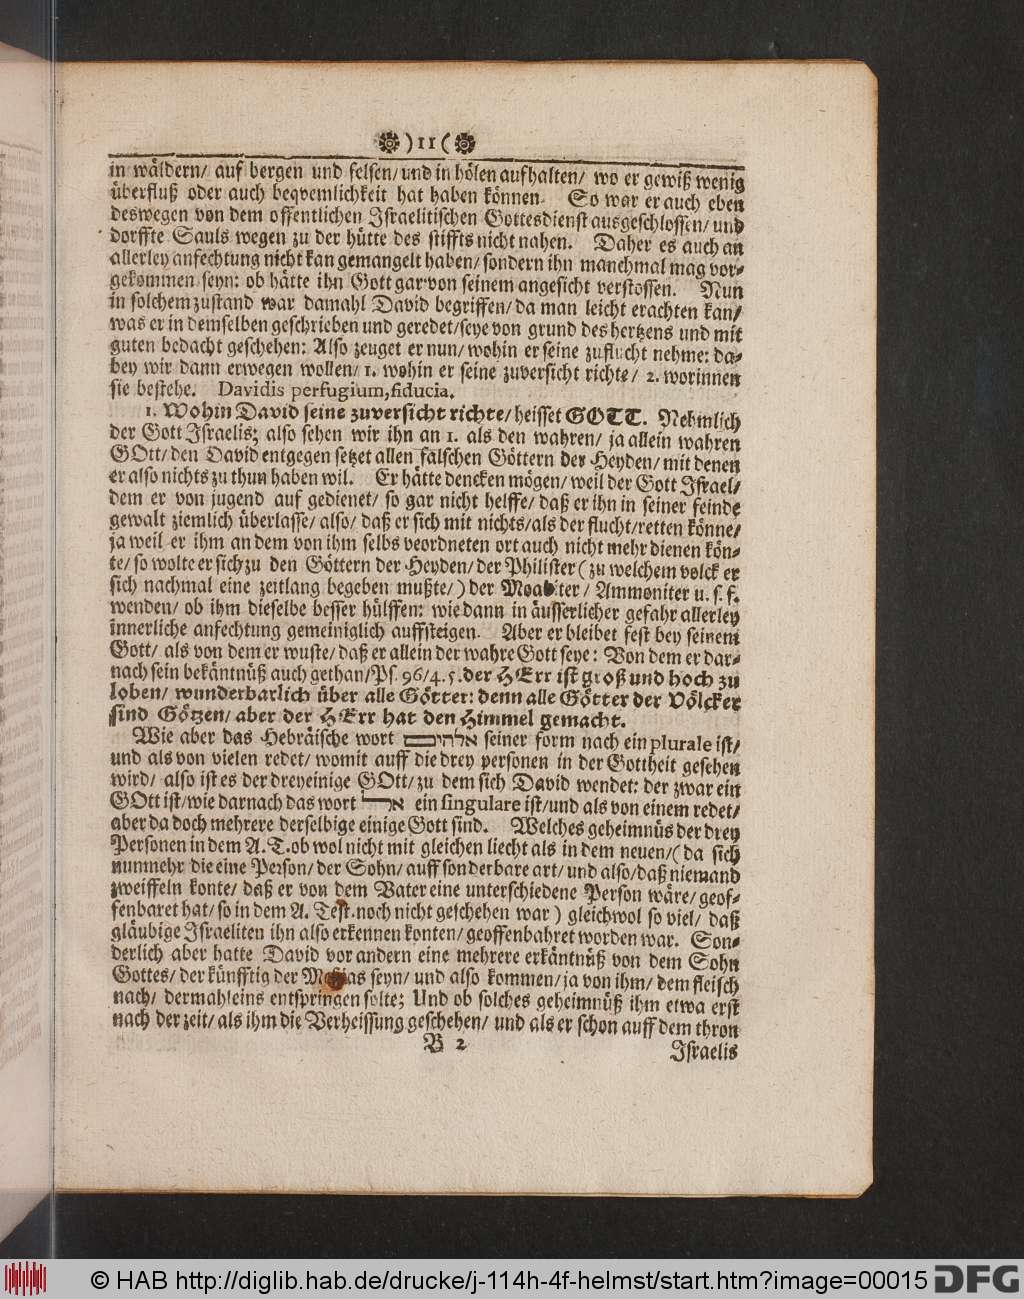 ) 11 (
in wäldern/ auf bergen und felsen/ und in hölen aufhalten/ wo er gewiß wenig
überfluß oder auch beqvemlichkeit hat haben können. So war er auch eben
deswegen von dem offentlichen Israelitischen Gottesdienst ausgeschlossen/ und
dorffte Sauls wegen zu der hütte des stiffts nicht nahen. Daher es auch an
allerley anfechtung nicht kan gemangelt haben/ sondern ihn manchmal mag vor-
gekommen seyn: ob hätte ihn Gott gar von seinem angesicht verstossen. Nun
in solchem zustand war damahl David begriffen/ da man leicht erachten kan/
was er in demselben geschrieben und geredet/ seye von grund des hertzens und mit
guten bedacht geschehen: Also zeuget er nun/ wohin er seine zuflucht nehme: da-
bey wir dann erwegen wollen/ 1. wohin er seine zuversicht richte/ 2. worinnen
sie bestehe. Davidis perfugium, fiducia.
1. Wohin David seine zuversicht richte/ heisset GOTT. Nehmlich
der Gott Israelis; also sehen wir ihn an 1. als den wahren/ ja allein wahren
GOtt/ den David entgegen setzet allen falschen Göttern der Heyden/ mit denen
er also nichts zu thun haben wil. Er hätte dencken mögen/ weil der Gott Israel/
dem er von jugend auf gedienet/ so gar nicht helffe/ daß er ihn in seiner feinde
gewalt ziemlich überlasse/ also/ daß er sich mit nichts/ als der flucht/ retten könne/
ja weil er ihm an dem von ihm selbs veordneten ort auch nicht mehr dienen kön-
te/ so wolte er sich zu den Göttern der Heyden/ der Philister (zu welchem volck er
sich nachmal eine zeitlang begeben mußte/) der Moabiter/ Ammoniter u. s. f.
wenden/ ob ihm dieselbe besser hülffen: wie dann in äusserlicher gefahr allerley
innerliche anfechtung gemeiniglich auffsteigen. Aber er bleibet fest bey seinem
Gott/ als von dem er wuste/ daß er allein der wahre Gott seye: Von dem er dar-
nach sein bekäntnüß auch gethan/ Ps. 96/ 4. 5. der HErr ist groß und hoch zu
loben/ wunderbarlich über alle Götter: denn alle Götter der Völcker
sind Götzen/ aber der HErr hat den Himmel gemacht.
Wie aber das Hebräische wort אלהים seiner form nach ein plurale ist/
und als von vielen redet/ womit auff die drey personen in der Gottheit gesehen
wird/ also ist es der dreyeinige GOtt/ zu dem sich David wendet: der zwar ein
GOtt ist/ wie darnach das wort אל ein singulare ist/ und als von einem redet/
aber da doch mehrere derselbige einige Gott sind. Welches geheimnüs der drey
Personen in dem A. T. ob wol nicht mit gleichen liecht als in dem neuen/ (da sich
nunmehr die eine Person/ der Sohn/ auff sonderbare art/ und also/ daß niemand
zweiffeln konte/ daß er von dem Vater eine unterschiedene Person wäre/ geof-
fenbaret hat/ so in dem A. Test. noch nicht geschehen war) gleichwol so viel/ daß
gläubige Israeliten ihn also erkennen konten/ geoffenbahret worden war. Son-
derlich aber hatte David vor andern eine mehrere erkäntnüß von dem Sohn
Gottes/ der künfftig der Messias seyn/ und also kommen/ ja von ihm/ dem fleisch
nach/ dermahleins entspringen solte; Und ob solches geheimnüß ihm etwa erst
nach der zeit/ als ihm die Verheissung geschehen/ und als er schon auff dem thron
B 2
Israelis
© HAB http://diglib.hab.de/drucke/j-114h-4f-helmst/start.htm?image=00015 DFG